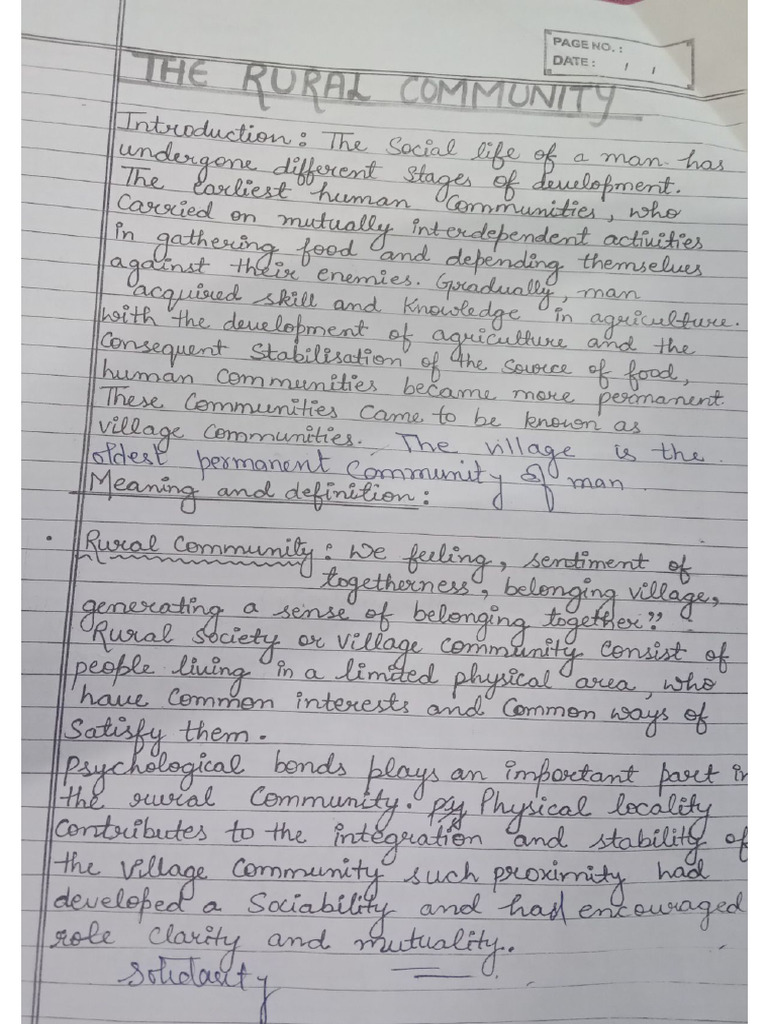 PAGE NO.:
DATE: / /
THE RURAL COMMUNITY
Introduction: The Social life of a man has
undergone different stages of development.
The earliest human Communities, who
Carried on mutually interdependent activities
in gathering food and depending themselves
against their enemies. Gradually, man
acquired skill and Knowledge in agriculture.
with the development of agriculture and the
Consequent Stabilisation of the source of food,
human Communities became more permanent.
These Communities Came to be known as
village Communities. The village is the
oldest permanent Community of man.
Meaning and definition:
• Rural Community: We feeling, sentiment of
togetherness, belonging village,
generating a sense of belonging together."
Rural society or village community consist of
people living in a limited physical area, who
have common interests and Common ways of
Satisfy them.
Psychological bonds plays an important part in
the rural Community. psy Physical locality
Contributes to the integration and stability of
the village Community such proximity had
developed a Sociability and had encouraged
role clarity and mutuality..
Solidarity